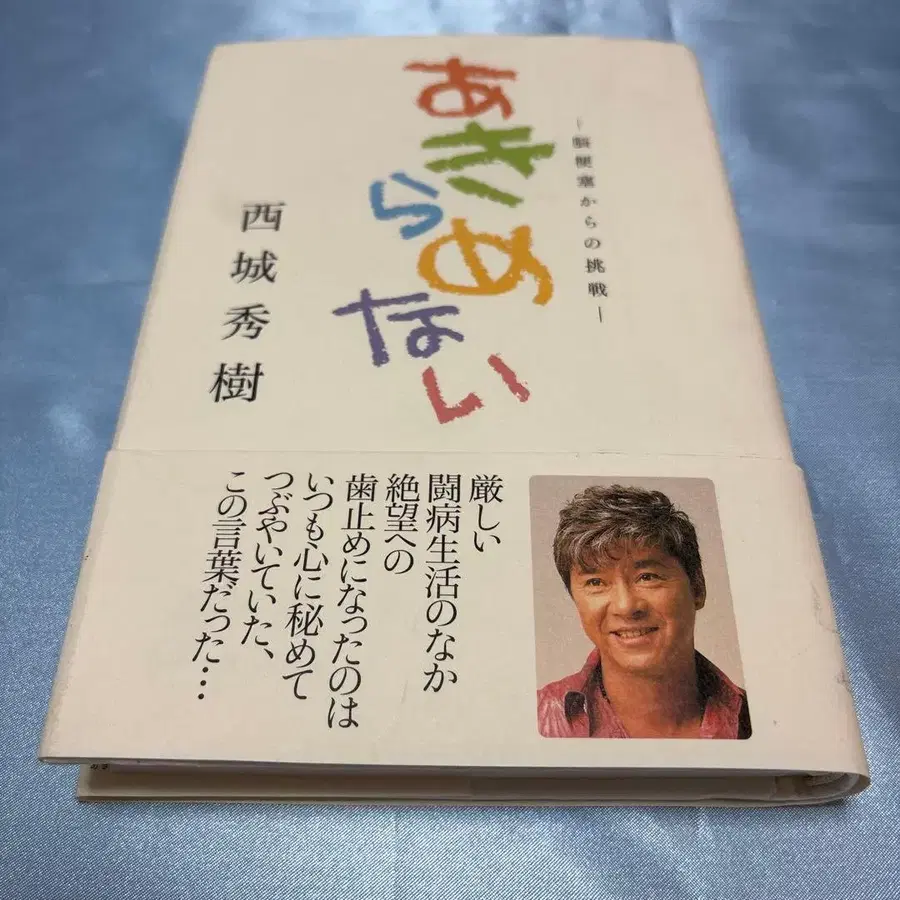 ―脳梗塞からの挑戦―
あきらめない
西城秀樹
厳しい
闘病生活のなか
絶望への
歯止めになったのは
いつも心に秘めて
つぶやいていた、
この言葉だった…